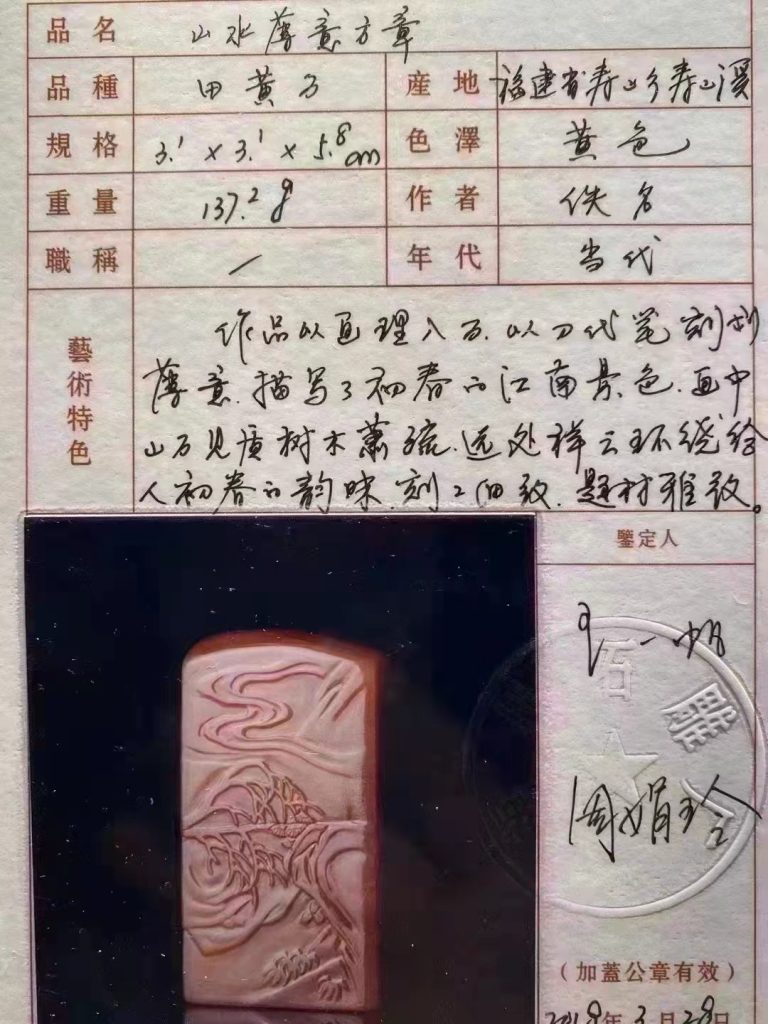 品名 山水薄意方章
品種 田黄石 産地 福建省寿山乡寿山溪
規格 3.1 × 3.1 × 5.8 cm 色澤 黄色
重量 137.2g 作者 佚名
職稱 / 年代 当代
藝術特色
作品以画理入石.以刀代笔刻划
薄意.描写了初春的江南景色.画中
山石见质树木萧疏.远处祥云环绕给
人初春的韵味.刻工细致.题材雅致。
鑒定人
一帆
石雕
周娟玲
（加蓋公章有效）
2018年3月28日